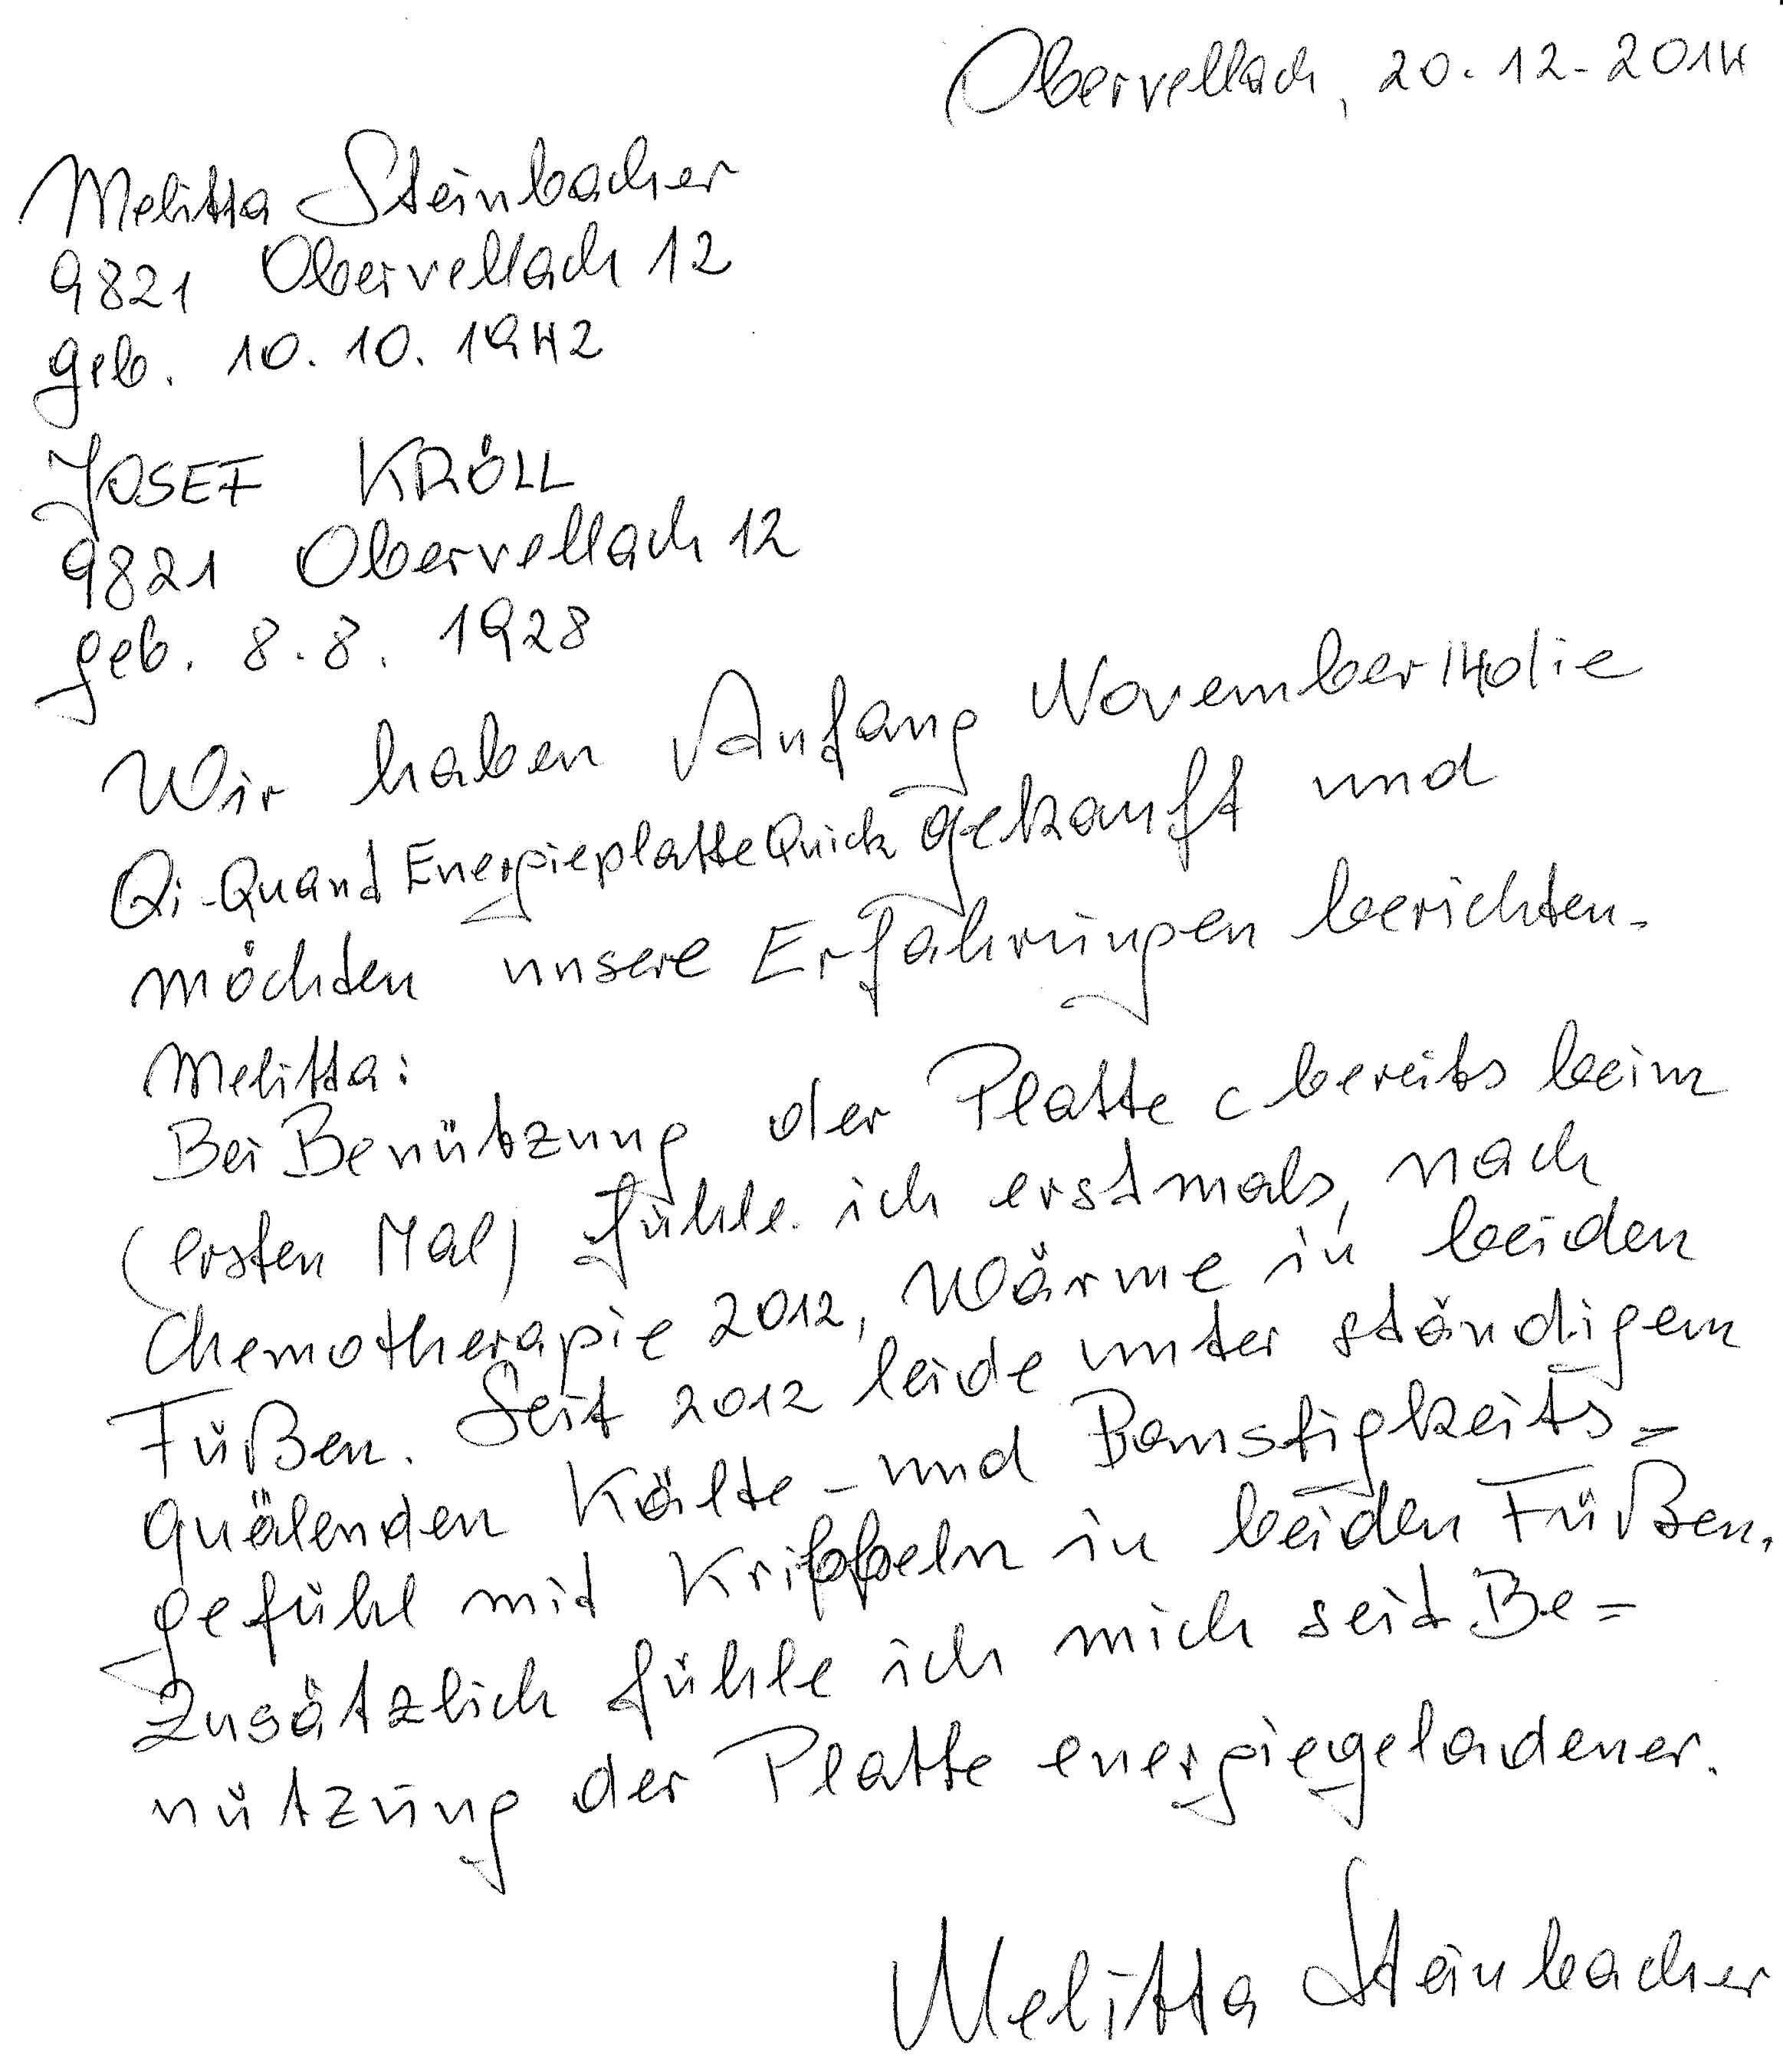 Obervellach, 20.12.2014
Melitta Steinbacher
9821 Obervellach 12
geb. 10.10.1942
JOSEF KRÖLL
9821 Obervellach 12
geb. 8.8.1928
Wir haben Anfang November 14 die
Qi-Quand Energieplatte Quick gekauft und
möchten unsere Erfahrungen berichten.
Melitta:
Bei Benützung der Platte ( bereits beim
(ersten Mal) fühle ich erstmals, nach
Chemotherapie 2012, Wärme in beiden
Füßen. Seit 2012 leide unter ständigem
quälenden Kälte- und Bamstigkeits=
gefühl mit Kribbeln in beiden Füßen.
Zusätzlich fühle ich mich seit Be=
nützung der Platte energiegeladener.
Melitta Steinbacher